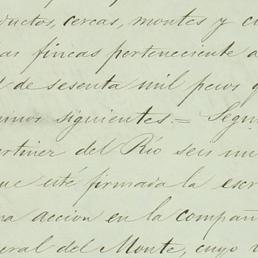 ductos, cercas, montes y cu
as fincas perteneciente a
l de sesenta mil pesos q
inos siguientes.= Segu
artinez del Rio seis mi
que esté firmada la escr
na accion en la compañ
eral del Monte, cuyo v